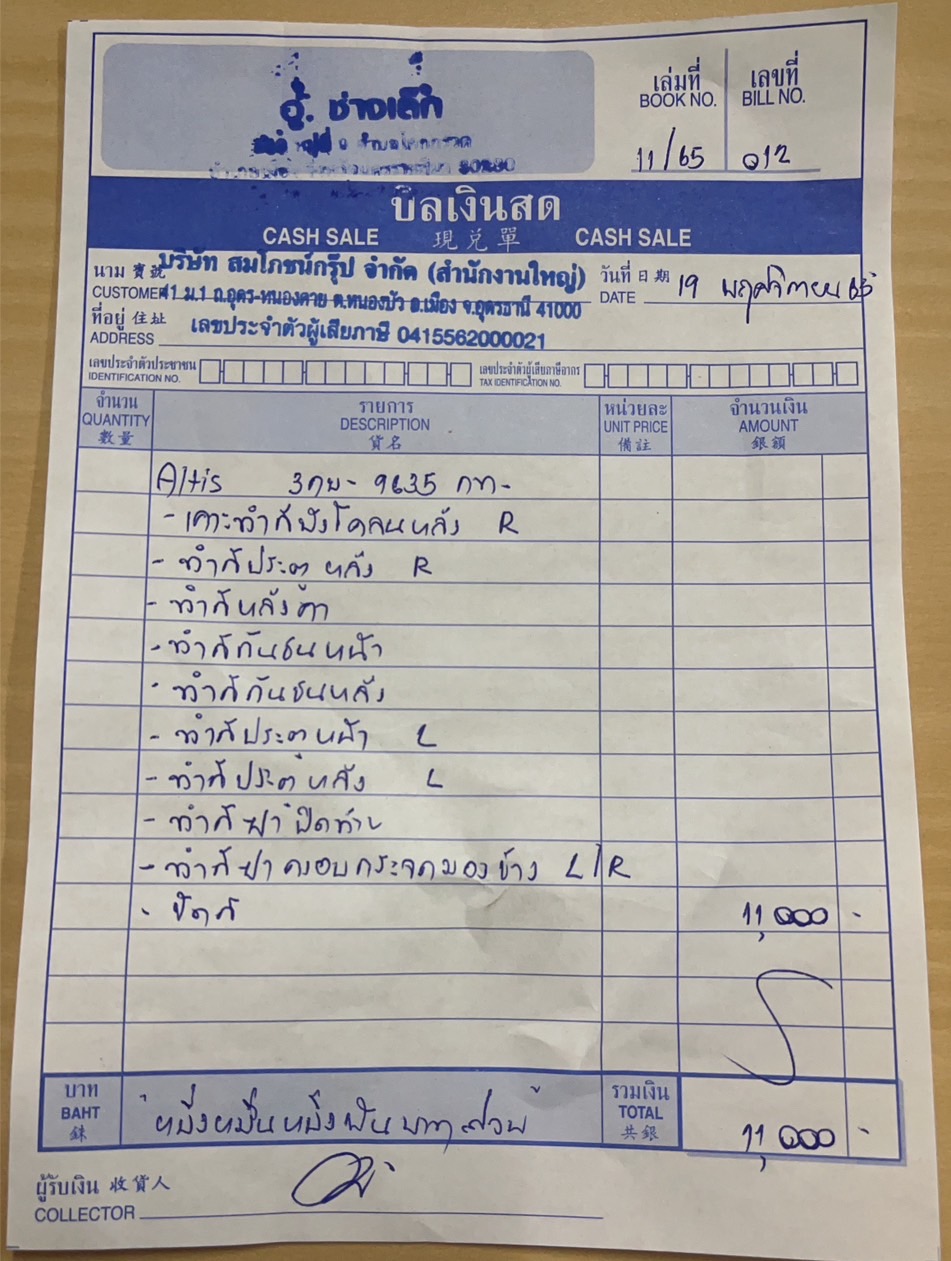 อู่ ช่างเล็ก
เล่มที่ เลขที่
BOOK NO. BILL NO.
11/65 012
30280
บิลเงินสด
CASH SALE 現兌單 CASH SALE
นาม 寶號 บริษัท สมโภชน์กรุ๊ป จำกัด (สำนักงานใหญ่) วันที่ 日期 19 พฤศจิกายน 65
CUSTOMER 41 ม.1 ถ.อุดร-หนองคาย ต.หนองบัว อ.เมือง จ.อุดรธานี 41000 DATE
ที่อยู่ 住址 เลขประจำตัวผู้เสียภาษี 0415562000021
ADDRESS
เลขประจำตัวประชาชน เลขประจำตัวผู้เสียภาษีอากร
IDENTIFICATION NO. TAX IDENTIFICATION NO.
จำนวน รายการ หน่วยละ จำนวนเงิน
QUANTITY DESCRIPTION UNIT PRICE AMOUNT
數量 貨名 備註 銀額
Altis 3กบ- 9635 กท-
- เคาะทำสีบังโคลนหลัง R
- ทำสีประตูหลัง R
- ทำสีหลังคา
- ทำสีกันชนหน้า
- ทำสีกันชนหลัง
- ทำสีประตูหน้า L
- ทำสีประตูหลัง L
- ทำสีฝาปิดท้าย
- ทำสีฝาครอบกระจกมองข้าง L/R
- ขัดสี 11,000 -
บาท รวมเงิน
BAHT "หนึ่งหมื่นหนึ่งพันบาทถ้วน" TOTAL 11,000 -
銖 共銀
ผู้รับเงิน 收貨人
COLLECTOR